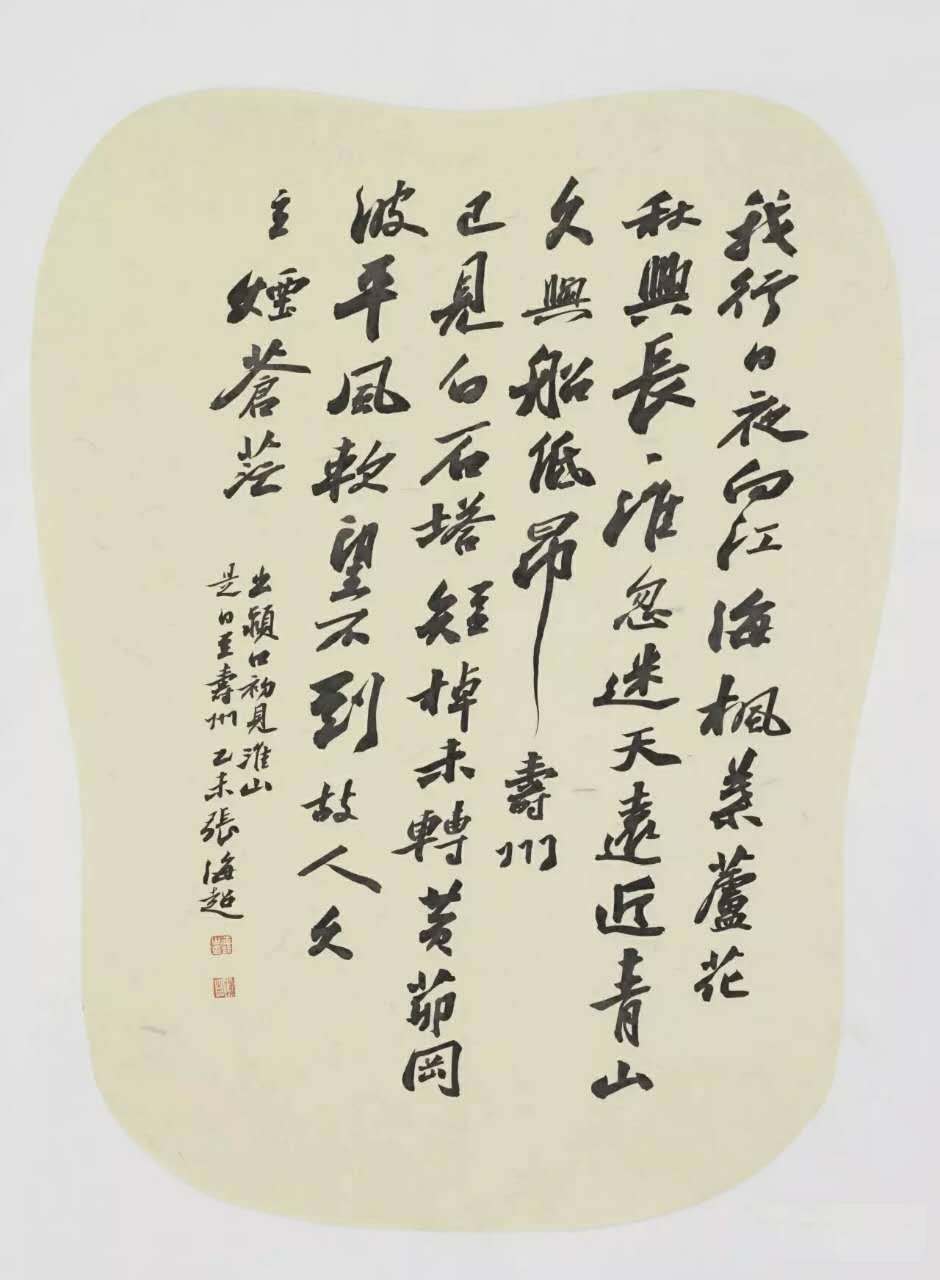 我行日夜向江海楓葉蘆花
秋興長、淮忽迷天遠近青山
久與船低昂壽州
已見白石塔短棹未轉黃茆岡
波平風軟望不到故人久
立煙蒼茫
出潁口初見淮山
是日至壽州乙未張海超